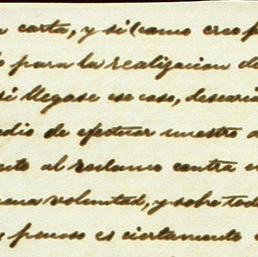 carta, y si (como creo
para la realizacion de
si llegase ese caso, desearia
medio de efectuar nuestro
al reclamo contra
buena voluntad, y sobre todo
penoso es ciertamente